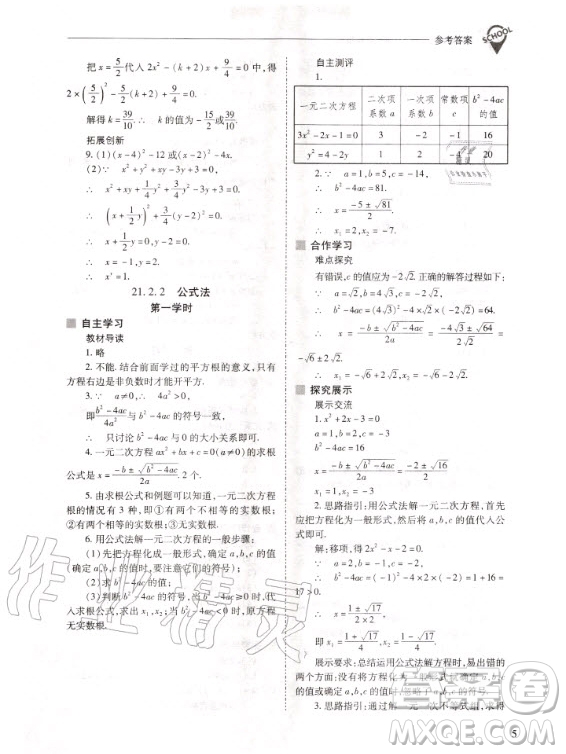 参考答案
SCHOOL
把 x=5/2 代入 2x²-(k+2)x+9/4=0,得
2×(5/2)²-(k+2)×5/2+9/4=0.
解得 k=39/10. ∴ k 的值为-15或39/10.
拓展创新
9. (1)(x-4)²-12 或(x-2)²-4x.
(2)∵ x²+y²+xy-3y+3=0,
∴ (x+y/2)²+3/4(y-2)²=0.
∴ x+1/2y=0,y-2=0.
∴ x=-1,y=2.
21.2.2 公式法
第一学时
自主学习
教材导读
1. 略
2. 不能. 结合前面学过的平方根的意义,只有
方程右边是非负数时才能开平方.
3. ∵ a≠0,∴ 4a²>0,
即(b²-4ac)/4a² 与 b²-4ac 的符号一致,
∴ 只讨论 b²-4ac 与 0 的大小关系即可.
4. 一元二次方程 ax²+bx+c=0(a≠0)的求根
公式是 x=(-b±√(b²-4ac))/2a. 2 个.
5. 由求根公式和例题可以知道,一元二次方程
根的情况有 3 种,即①有两个不相等的实数根;
②有两个相等的实数根;③无实数根.
6. 用公式法解一元二次方程的一般步骤:
(1)先把方程化成一般形式,确定 a,b,c 的值
(确定 a,b,c 的值时,要注意它们的符号);
(2)求出 b²-4ac 的值,当 b²-4ac≥0时,代
入求根公式,求出 x₁,x₂;当 b²-4ac<0 时,方程
无实数根.
自主测评
1.
一元二次方程 二次项系数 a 一次项系数 b 常数项 c b²-4ac 的值
3x²-2x-1=0 3 -2 -1 16
y²=4-2y 1 2 -4 20
2. ∵ a=1,b=5,c=-14,
∴ b²-4ac=81.
∴ x=(-5±√81)/2.
∴ x₁=2,x₂=-7.
合作学习
难点探究
有错误,c 的值应为-2√2. 正确的解答过程如下:
∵ a=√2,b=4√3,c=-2√2,
∴ x=(-b±√(b²-4ac))/2a=(-4√3±√64)/2√2=
-√6±2√2.
∴ x₁=-√6+2√2,x₂=-√6-2√2.
探究展示
展示交流
1. x²+2x-3=0
b²-4ac=16,
x=(-b±√(b²-4ac))/2a=(-2±√16)/2
x₁=1,x₂=-3.
2. 思路指引:用公式法解一元二次方程,首先
应把方程化为一般形式,然后将 a,b,c 的值代入公
式即可.
解:移项,得 2x²-x-2=0.
∵ a=2,b=-1,c=-2,
∴ b²-4ac=(-1)²-4×2×(-2)=1+16=
17>0.
∴ x=(1±√17)/(2×2)=(1±√17)/4,
即 x₁=(1+√17)/4,x₂=(1-√17)/4.
展示要求:总结运用公式法解方程时,易出错的
两个方面:没有将方程化为一般形式就确定 a,b,c
的值或确定 a,b,c 的值时忽略了 a,b,c 的符号.
作业精灵
答案圈
MXQE.COM
5